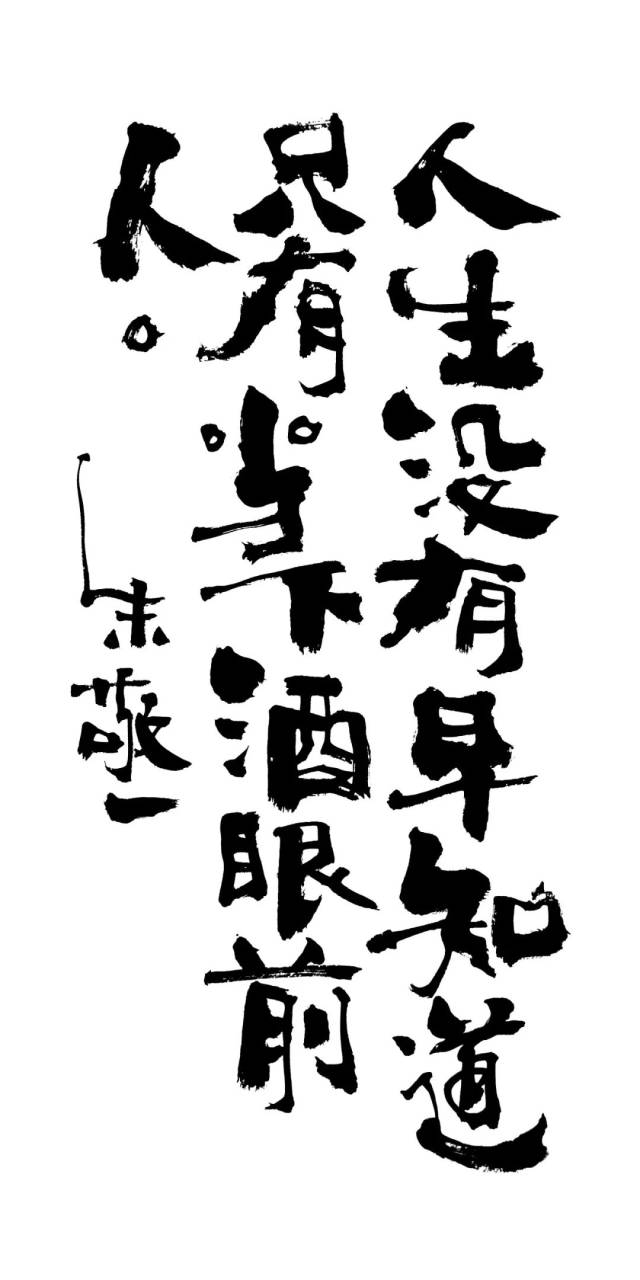 人生没有早知道
只有当下酒眼前
人。
朱敬一